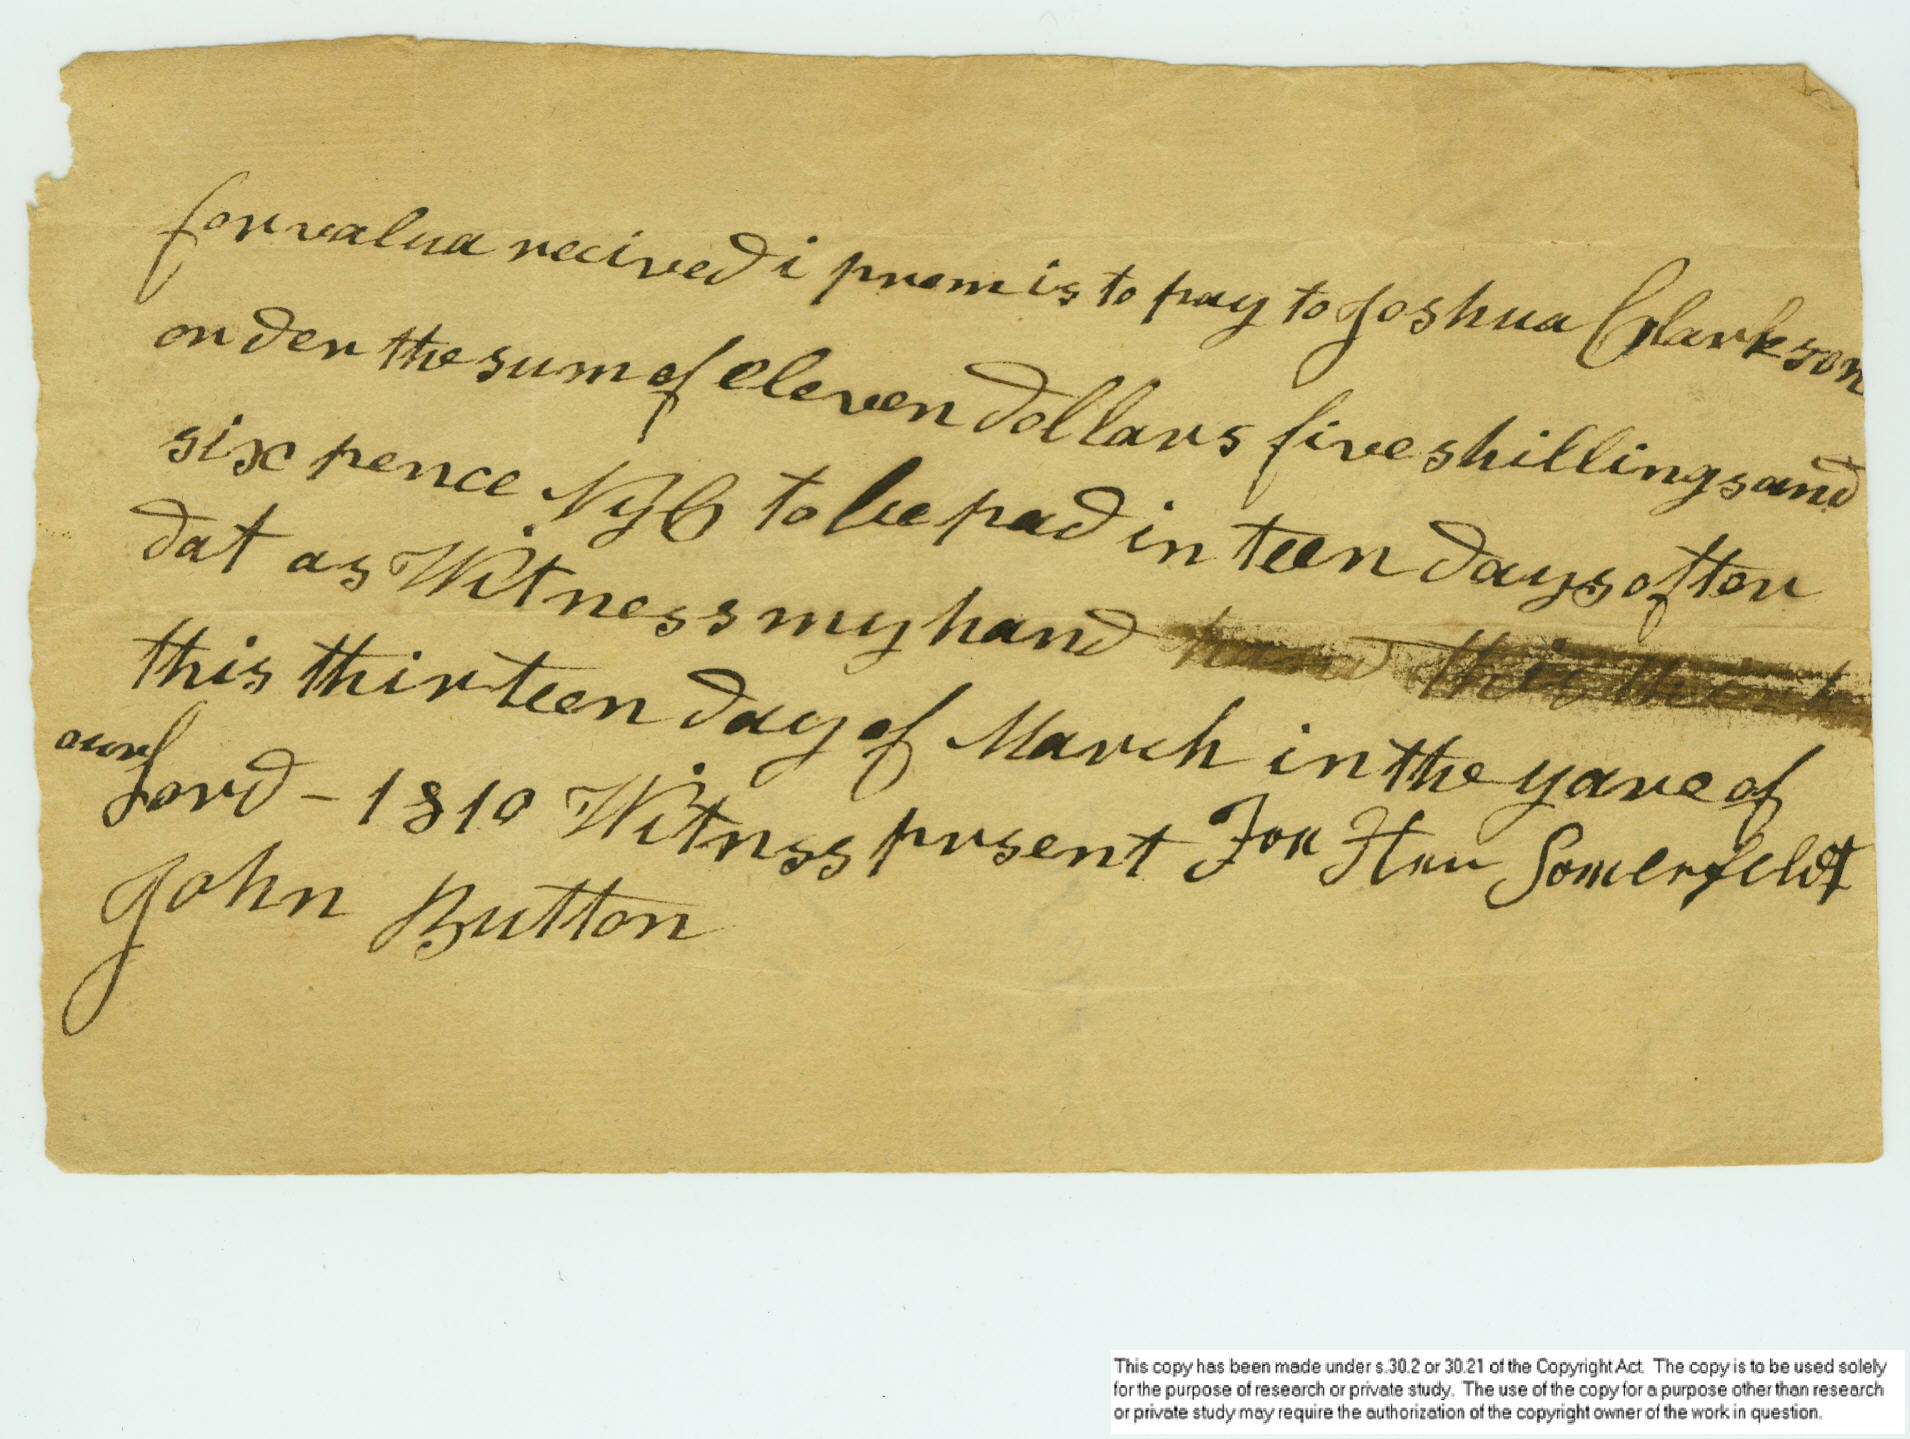 for valua recived i promis to pay to Joshua Clarkson
order the sum of eleven dollars five shillings and
six pence NyC to be pad in teen days after
dat as Witness my hand
this thirteen day of March in the yare of
our Lord - 1810 Witnss prsent
John Button
This copy has been made under s.30.2 or 30.21 of the Copyright Act. The copy is to be used solely
for the purpose of research or private study. The use of the copy for a purpose other than research
or private study may require the authorization of the copyright owner of the work in question.